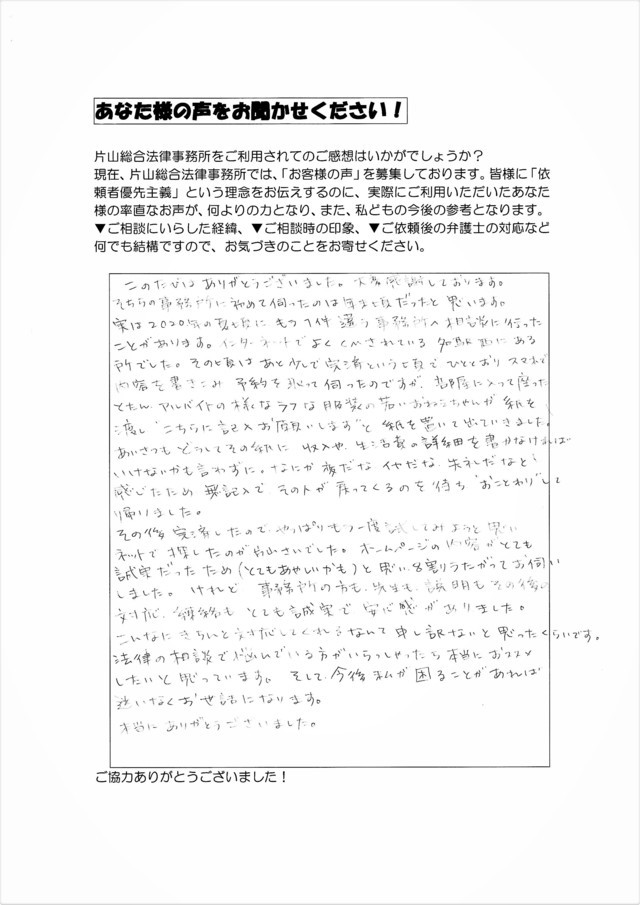 あなた様の声をお聞かせください！
片山総合法律事務所をご利用されてのご感想はいかがでしょうか？
現在、片山総合法律事務所では、「お客様の声」を募集しております。皆様に「依
頼者優先主義」という理念をお伝えするのに、実際にご利用いただいたあなた
様の率直なお声が、何よりの力となり、また、私どもの今後の参考となります。
▼ご相談にいらした経緯、▼ご相談時の印象、▼ご依頼後の弁護士の対応など
何でも結構ですので、お気づきのことをお寄せください。
このたびは ありがとうございました。大変感謝しております。
そちらの事務所に初めて伺ったのは 頃だったと思います。
実は2020年の 頃に もう1件 違う事務所へ相談に行った
ことがあります。インターネットでよく されている 駅にある
所でした。その頃はあと少しで完済という頃で ひととおりスマホで
内容を書きこみ 予約を取って伺ったのですが、部屋に入って座った
とたん、アルバイトの様なラフな服装の若いおねえちゃんが 紙を
渡し“こちらに記入お願いします”と 紙を置いて出ていきました。
あいさつも どうしてその紙に 収入や 生活費の詳細を書かなければ
いけないかも言わずに。なにか嫌だな イヤだな、失礼だなと
感じたため 無記入で、その人が 戻ってくるのを待ち“おことわり”して
帰りました。
その後 完済したので やっぱりもう一度試してみようと思い
ネットで探したのが片山さいでした。ホームページの内容がとても
誠実だったため(とてもあやしいかも)と思い、8割りうたがってお伺い
しました。けれど 事務所の方も、先生も、説明も その後の
対応、連絡も とても誠実で 安心感がありました。
こんなにきちんと対応してくれるなんて 申し訳ないと思ったくらいです。
法律の相談で悩んでいる方がいらっしゃったら 本当におススメ
したいと思っています。 そして、今後私が 困ることがあれば
迷いなくお世話になります。
本当に ありがとうございました。
ご協力ありがとうございました！